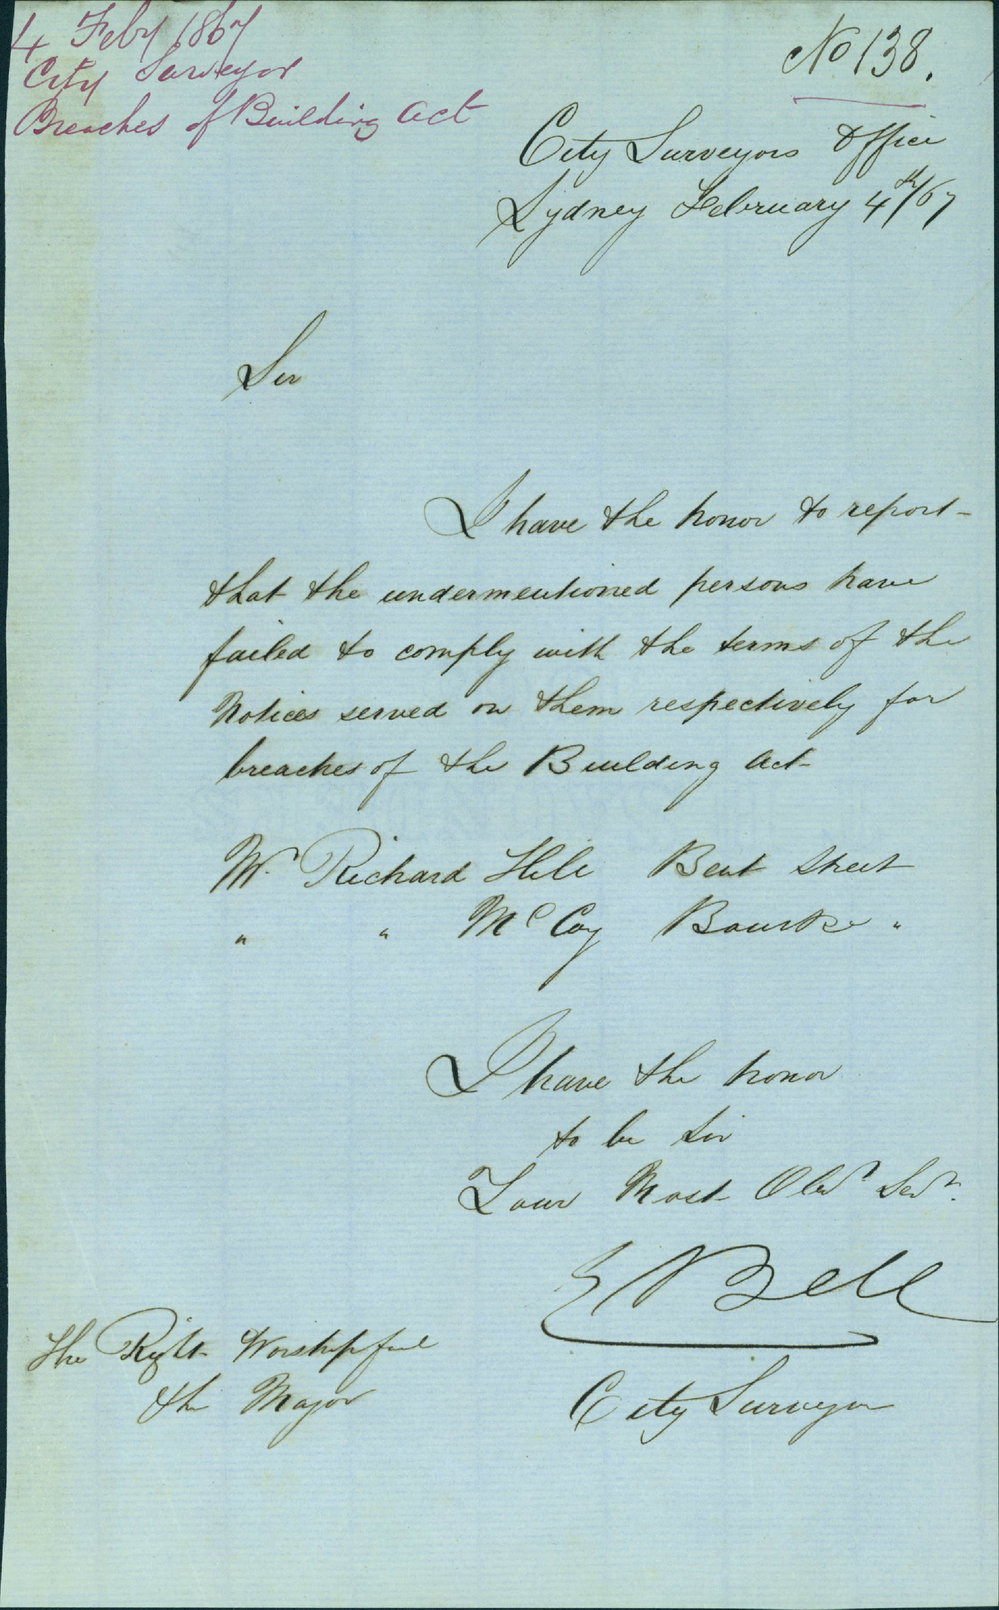 4 Feby 1867
City Surveyor
Breaches of Building Act
No 138.
City Surveyors Office
Sydney February 4th/67
Sir
I have the honor to report
that the undermentioned persons have
failed to comply with the terms of the
Notices served on them respectively for
breaches of the Building Act
Mr Richard Hill Bent Street
" " McCoy Bourke "
I have the honor
to be Sir
Your Most Obedt Servt.
E Bell
City Surveyor
The Right Worshipful
the Mayor